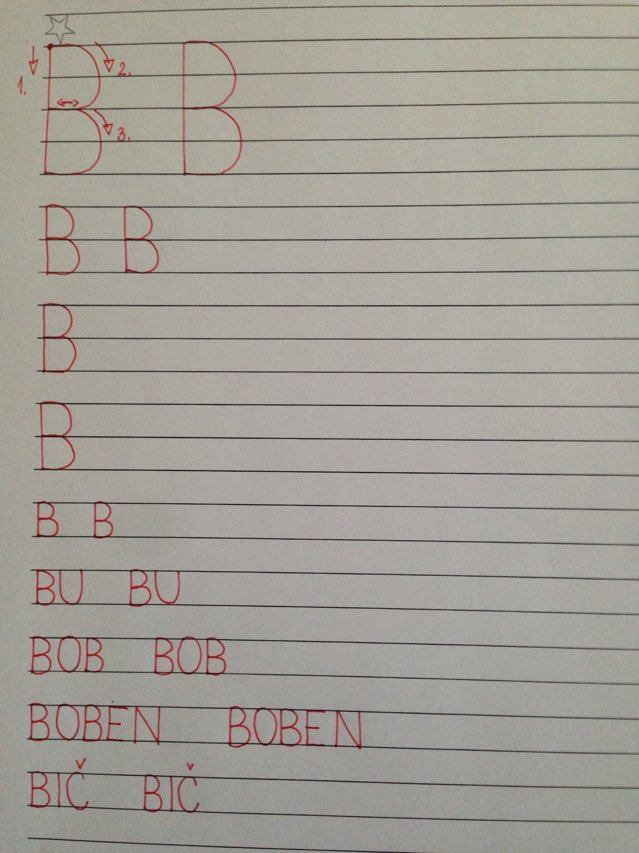 1. B 2. 3. B
B B
B
B
B B
BU BU
BOB BOB
BOBEN BOBEN
BIČ BIČ